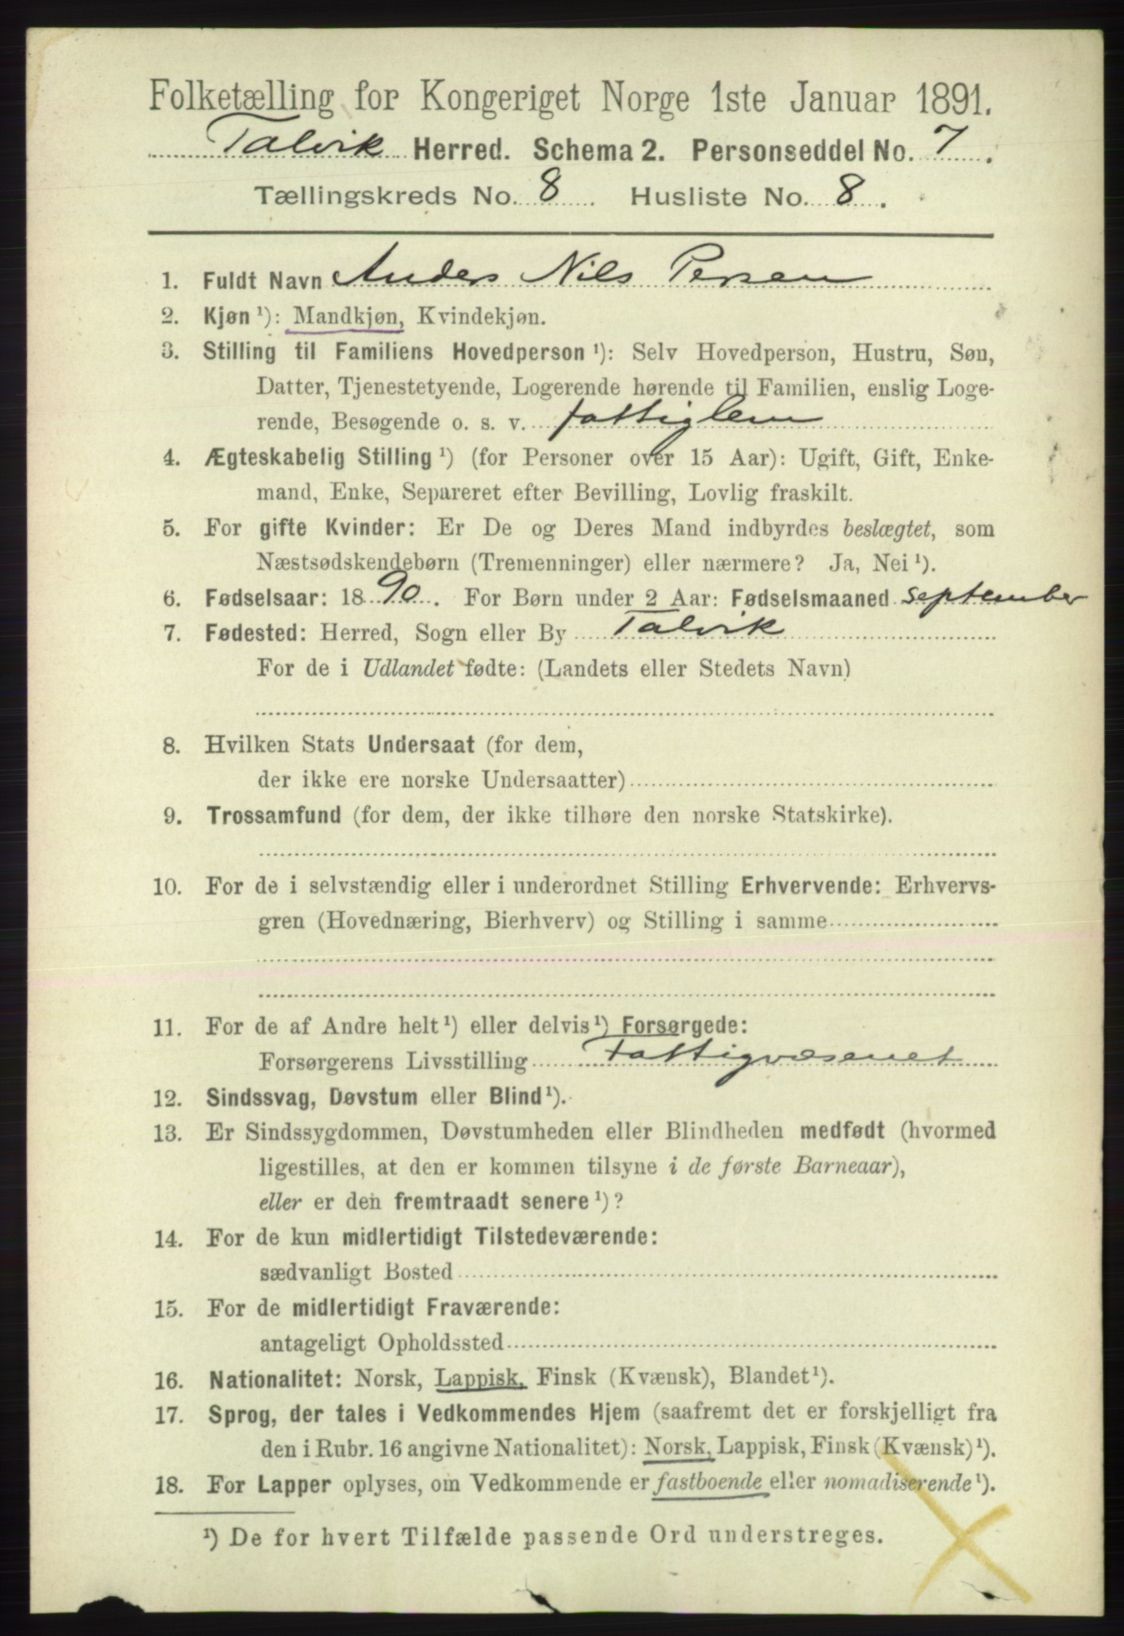 Folketælling for Kongeriget Norge 1ste Januar 1891.
Talvik Herred. Schema 2. Personseddel No. 7.
Tællingskreds No. 8. Husliste No. 8.
1. Fuldt Navn Anders Nils Persen
2. Kjøn ¹): Mandkjøn, Kvindekjøn.
3. Stilling til Familiens Hovedperson ¹): Selv Hovedperson, Hustru, Søn,
Datter, Tjenestetyende, Logerende hørende til Familien, enslig Loge-
rende, Besøgende o. s. v. fattiglem
4. Ægteskabelig Stilling ¹) (for Personer over 15 Aar): Ugift, Gift, Enke-
mand, Enke, Separeret efter Bevilling, Lovlig fraskilt.
5. For gifte Kvinder: Er De og Deres Mand indbyrdes beslægtet, som
Næstsødskendebørn (Tremenninger) eller nærmere? Ja, Nei ¹).
6. Fødselsaar: 1890. For Børn under 2 Aar: Fødselsmaaned september
7. Fødested: Herred, Sogn eller By Talvik
For de i Udlandet fødte: (Landets eller Stedets Navn)
8. Hvilken Stats Undersaat (for dem,
der ikke ere norske Undersaatter)
9. Trossamfund (for dem, der ikke tilhøre den norske Statskirke).
10. For de i selvstændig eller i underordnet Stilling Erhvervende: Erhvervs-
gren (Hovednæring, Bierhverv) og Stilling i samme
11. For de af Andre helt ¹) eller delvis ¹) Forsørgede:
Forsørgerens Livsstilling Fattigvæsenet
12. Sindssvag, Døvstum eller Blind ¹).
13. Er Sindssygdommen, Døvstumheden eller Blindheden medfødt (hvormed
ligestilles, at den er kommen tilsyne i de første Barneaar),
eller er den fremtraadt senere ¹)?
14. For de kun midlertidigt Tilstedeværende:
sædvanligt Bosted
15. For de midlertidigt Fraværende:
antageligt Opholdssted
16. Nationalitet: Norsk, Lappisk, Finsk (Kvænsk), Blandet ¹).
17. Sprog, der tales i Vedkommendes Hjem (saafremt det er forskjelligt fra
den i Rubr. 16 angivne Nationalitet): Norsk, Lappisk, Finsk (Kvænsk) ¹).
18. For Lapper oplyses, om Vedkommende er fastboende eller nomadiserende ¹).
¹) De for hvert Tilfælde passende Ord understreges.